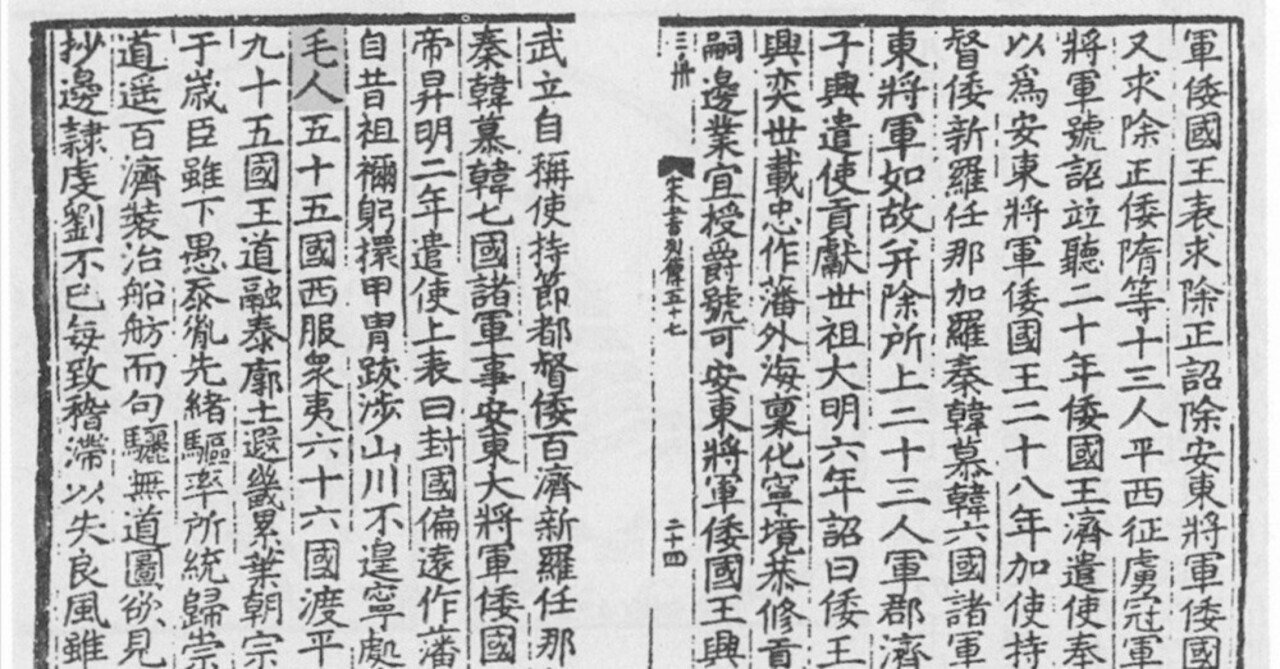 軍倭國王表求除正詔除安東將軍倭國
又求除正倭隋等十三人平西征虜冠軍
將軍號詔竝聽二十年倭國王濟遣使奉
以爲安東將軍倭國王二十八年加使持
督倭新羅任那加羅秦韓慕韓六國諸軍
東將軍如故并除所上二十三人軍郡濟
子興遣使貢獻世祖大明六年詔曰倭王
興奕世載忠作藩外海稟化寧境恭修貢
嗣邊業宜授爵號可安東將軍倭國王興
宋書列傳五十七
二十四
武立自稱使持節都督倭百濟新羅任那
秦韓慕韓七國諸軍事安東大將軍倭國
帝昇明二年遣使上表曰封國偏遠作藩
自昔祖禰躬擐甲冑跋涉山川不遑寧處
毛人五十五國西服衆夷六十六國渡平
九十五國王道融泰廓土遐畿累葉朝宗
于歲臣雖下愚忝胤先緒驅率所統歸崇
道遥百濟裝治船舫而句驪無道圖欲見
抄邊隷虔劉不已每致稽滯以失良風雖